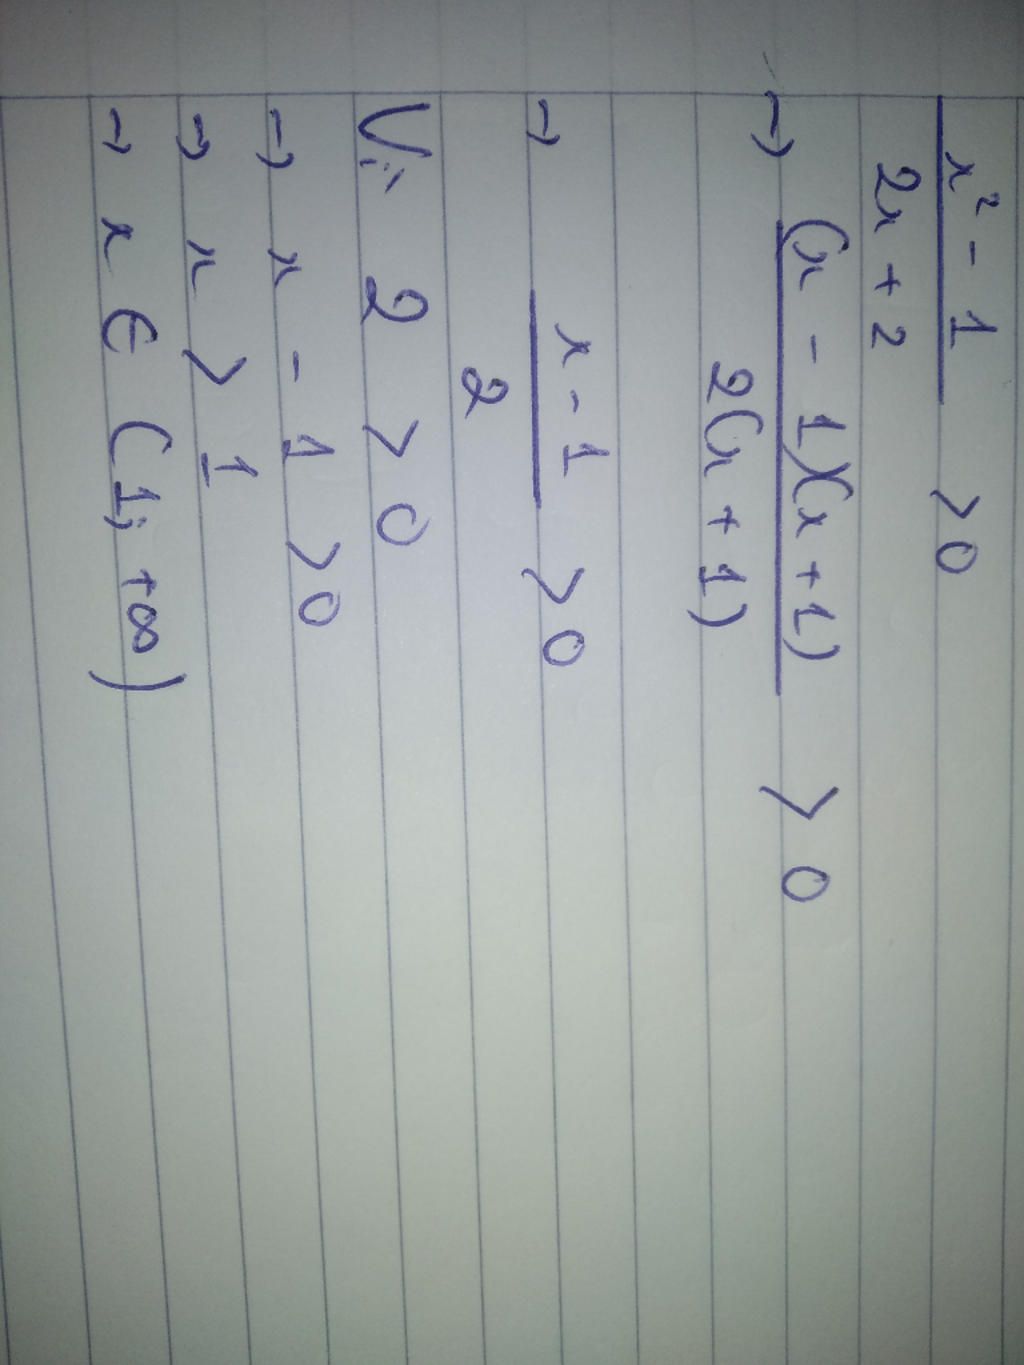 x² - 1
2x + 2 > 0
→ (x - 1)(x + 1)
2(x + 1) > 0
→ x - 1
2 > 0
Vì 2 > 0
→ x - 1 > 0
→ x > 1
→ x ∈ (1; +∞)